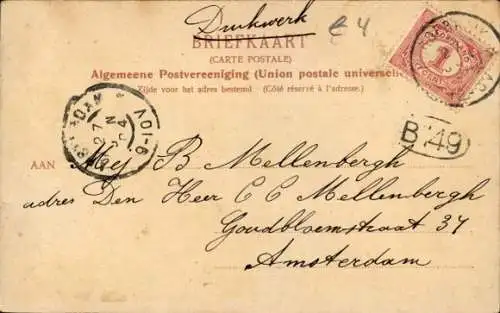 Drukwerk
€ 4
BRIEFKAART
(CARTE POSTALE)
Algemeene Postvereeniging (Union postale universelle)
Zijde voor het adres bestemd (Côté réservé à l'adresse.)
1
CENT
B 49
AAN Mej B Mellenbergh
adres Den Heer C C Mellenbergh
Goudbloemstraat 37
Amsterdam